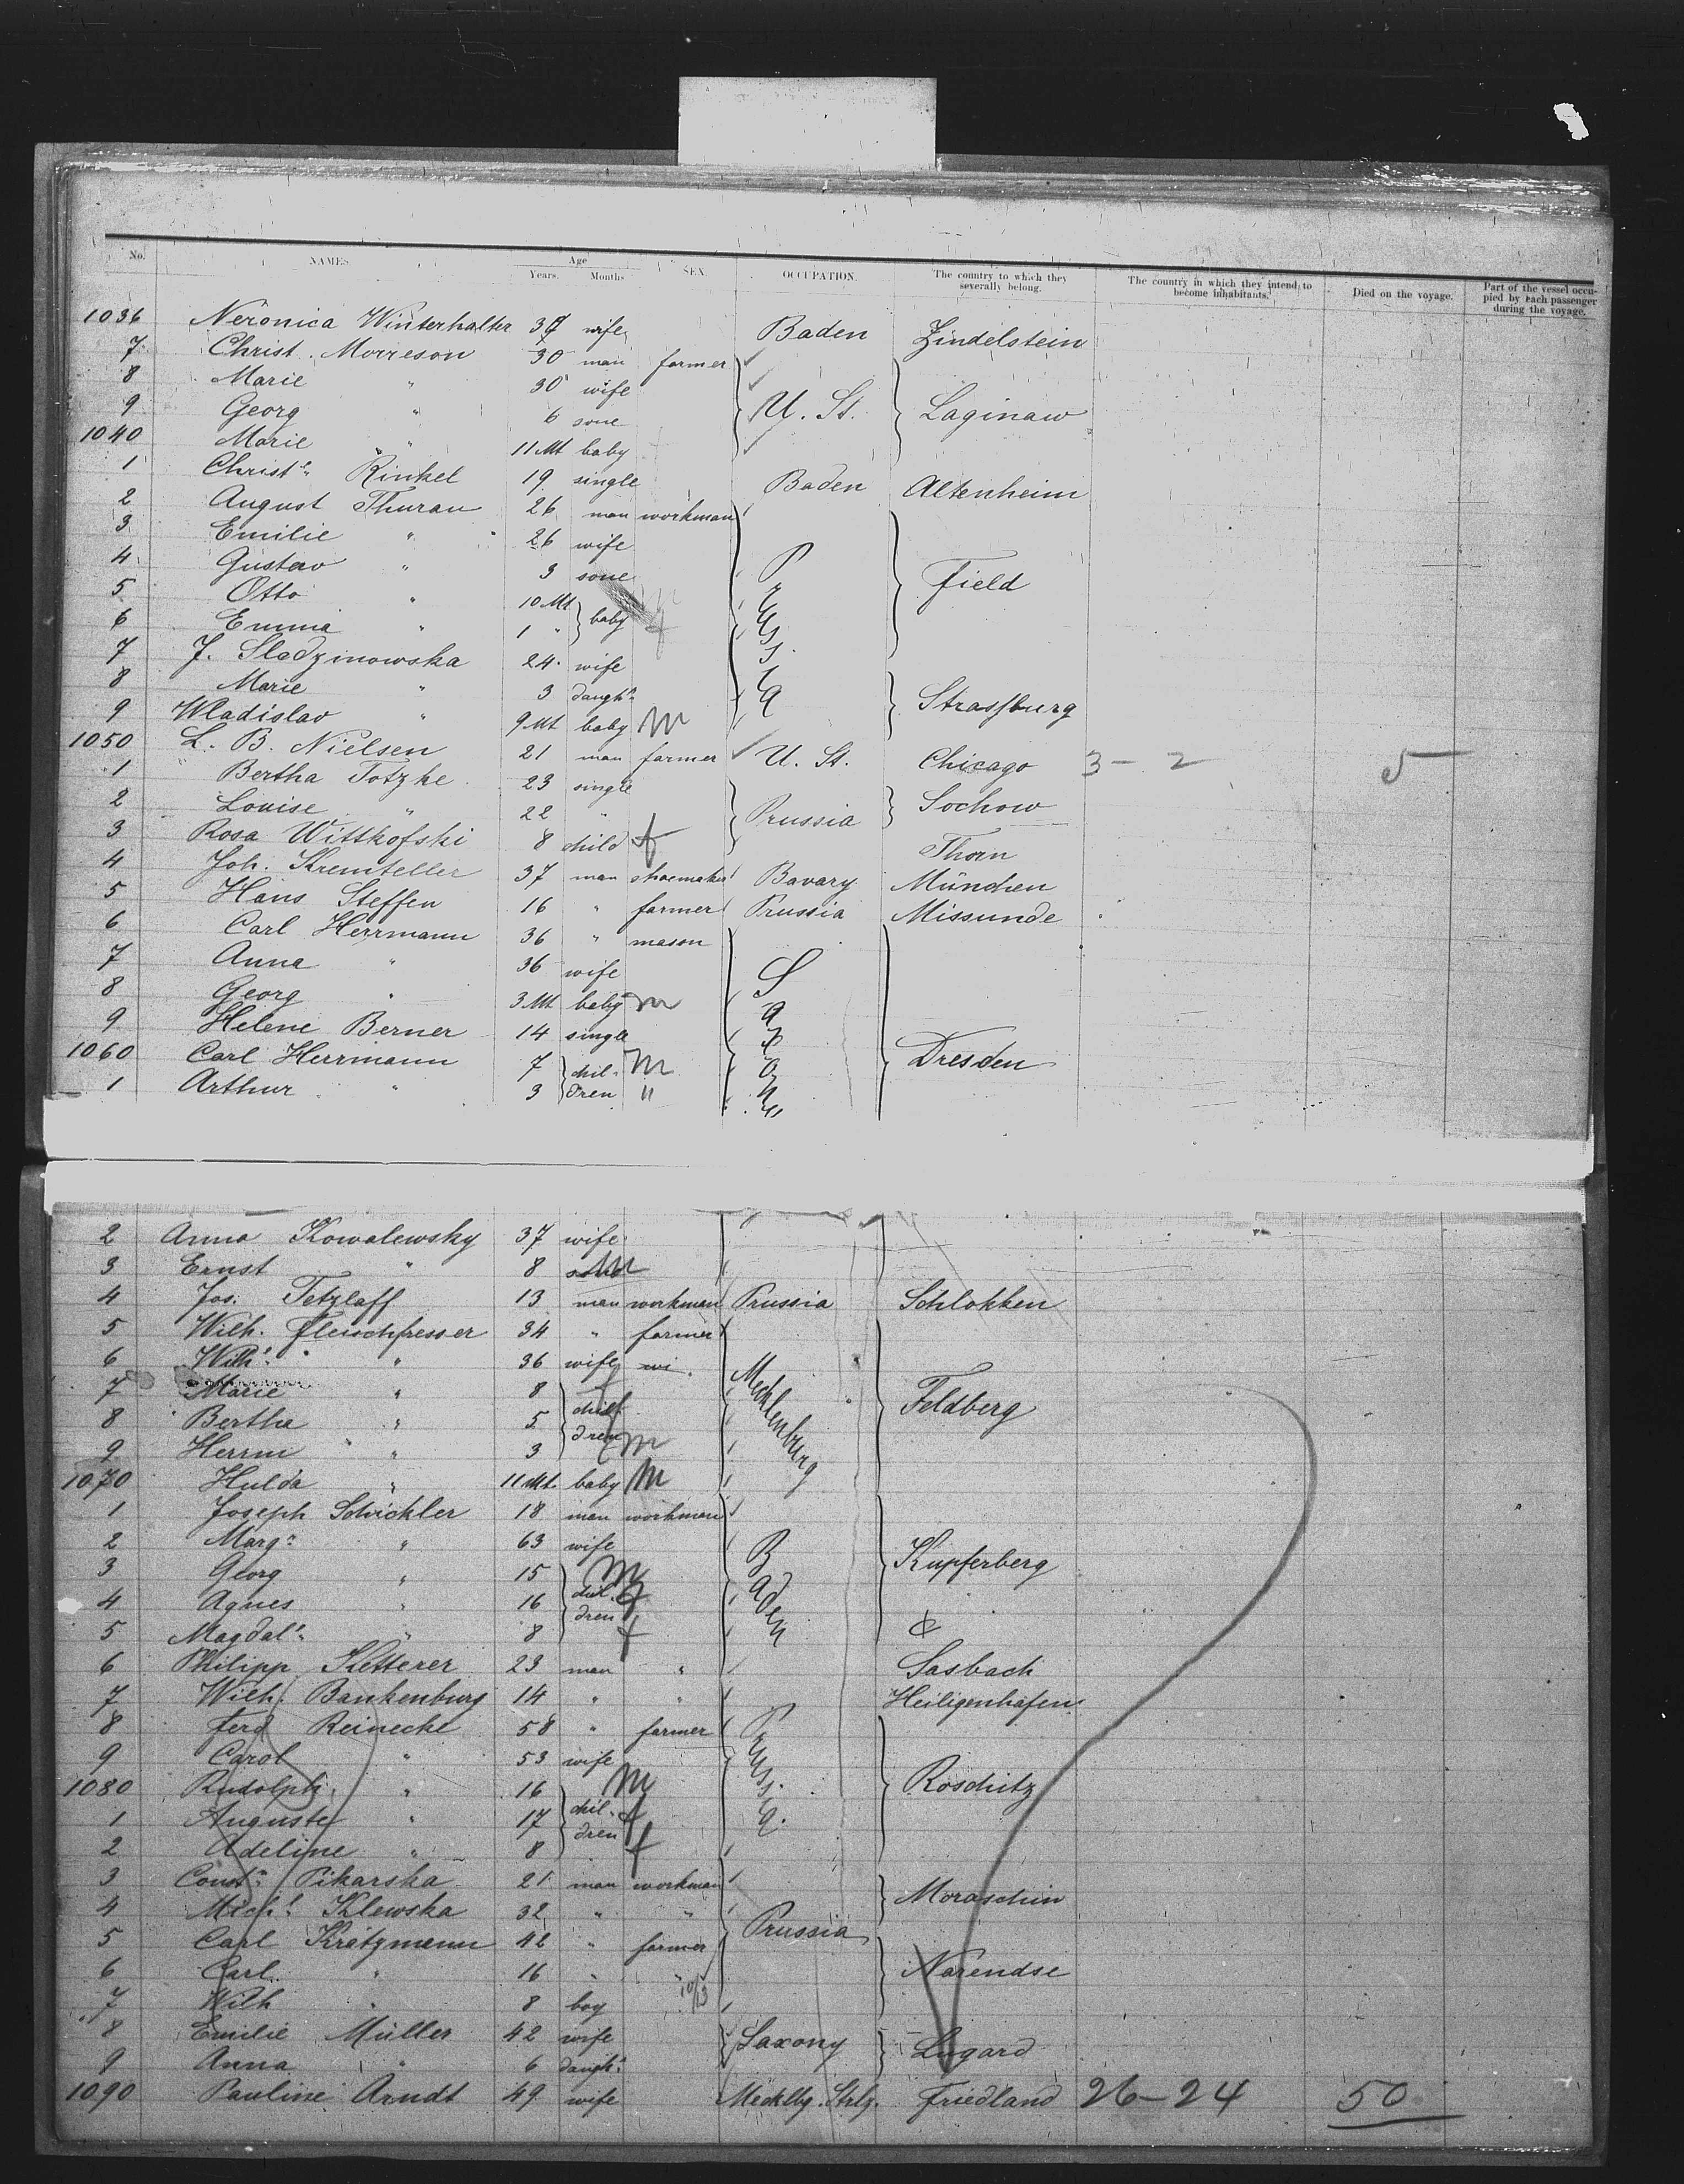 No. NAMES Age Years. Months SEX. OCCUPATION. The country to which they severally belong. The country in which they intend to become inhabitants. Died on the voyage. Part of the vessel occupied by each passenger during the voyage.
1036 Neronica Winterhalter wife Baden Zindelstein
7 Christ. Morreson 30 man farmer
8 Marie " 30 wife
9 Georg " 6 sone } U. St. } Laginaw
1040 Marie " 11 Mt baby
1 Christ" Rinkel 19 single Baden Altenheim
2 August Thurau 26 man workman
3 Emilie " 26 wife
4 Gustav " 3 sone Field
5 Otto " 10 Mt } baby m
6 Emma " 1 " f
7 J. Sladzinowska 24 wife
8 Marie " 3 daugh" Prussia Strassburg
9 Wladislav " 9 Mt baby m
1050 L. B. Nielsen 21 man farmer U. St. Chicago 3 - 2 5
1 Bertha Totzke 23 single
2 Louise " 22 " Prussia Sochow
3 Rosa Wittkofski 8 child f Thorn
4 Joh. Kremteller 37 man shoemaker Bavary München
5 Hans Steffen 16 " farmer Prussia Missunde
6 Carl Herrmann 36 " mason
7 Anna " 36 wife
8 Georg " 3 Mt baby m
9 Helene Berner 14 single
1060 Carl Herrmann 7 } chil- m Dresden
1 Arthur " 3 } dren "
2 Anna Kowalewsky 37 wife
3 Ernst " 8 m
4 Jos. Tetzlaff 13 man workman Prussia Schlokken
5 Wilh. Fleischfresser 34 " farmer
6 Wilh" " 36 wife
7 Marie " 8 } chil- Mecklenburg Feldberg
8 Bertha " 5 } dren
9 Herrm " 3 m
1070 Hulda " 11 Mt. baby m
1 Joseph Schickler 18 man workman
2 Marg" " 63 wife Kupferberg
3 Georg " 15 m
4 Agnes " 16 } chil- f Baden
5 Magdal" " 8 } dren f &
6 Philipp Ketterer 23 man " Sasbach
7 Wilh. Bankenburg 14 " " Heiligenhafen
8 Ferd Reinecke 58 " farmer
9 Carol " 53 wife
1080 Rudolph " 16 m Prussia. Roschitz
1 Auguste " 17 } chil- f
2 Adeline " 8 } dren f
3 Const" Pikarska 21 man workman Moraschin
4 Mich" Klewska 32 " "
5 Carl Krätzmann 42 " farmer Prussia
6 Carl " 16 " " Narendse
7 Wilh " 8 boy 10/13
8 Emilie Müller 42 wife Saxony Lugard
9 Anna " 6 daugh"
1090 Pauline Arndt 49 wife Mecklbg. Strlz. Friedland 26-24 50